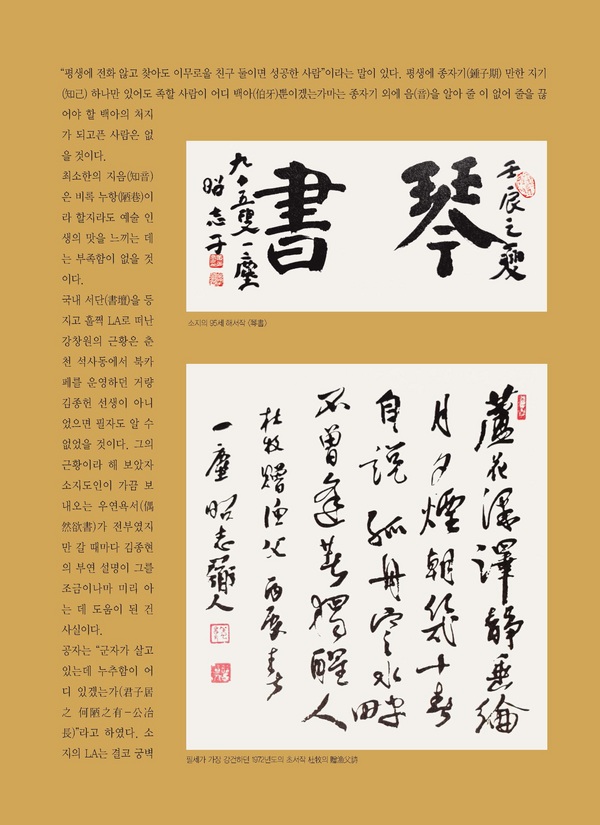 “평생에 전화 않고 찾아도 이무로울 친구 둘이면 성공한 사람”이라는 말이 있다. 평생에 종자기(鍾子期) 만한 지기
(知己) 하나만 있어도 족할 사람이 어디 백아(伯牙)뿐이겠는가마는 종자기 외에 음(音)을 알아 줄 이 없어 줄을 끊
어야 할 백아의 처지
가 되고픈 사람은 없
을 것이다.
최소한의 지음(知音)
은 비록 누항(陋巷)이
라 할지라도 예술 인
생의 맛을 느끼는 데
는 부족함이 없을 것
이다.
국내 서단(書壇)을 등
지고 훌쩍 LA로 떠난
강창원의 근황은 춘
천 석사동에서 북카
페를 운영하던 거량
김종헌 선생이 아니
었으면 필자도 알 수
없었을 것이다. 그의
근황이라 해 보았자
소지도인이 가끔 보
내오는 우연욕서(偶
然欲書)가 전부였지
만 갈 때마다 김종현
의 부연 설명이 그를
조금이나마 미리 아
는 데 도움이 된 건
사실이다.
공자는 “군자가 살고
있는데 누추함이 어
디 있겠는가(君子居
之 何陋之有-公冶
長)”라고 하였다. 소
지의 LA는 결코 궁벽
壬辰之夏
琴
書
九十五叟一塵
昭志子
소지의 95세 해서작 〈琴書〉
蘆花深澤靜垂綸
月夕煙朝幾十春
自說孤舟寒水畔
不曾逢著獨醒人
杜牧贈漁父 丙辰春
一塵昭志 人
필세가 가장 강건하던 1972년도의 초서작 杜牧의 贈漁父詩